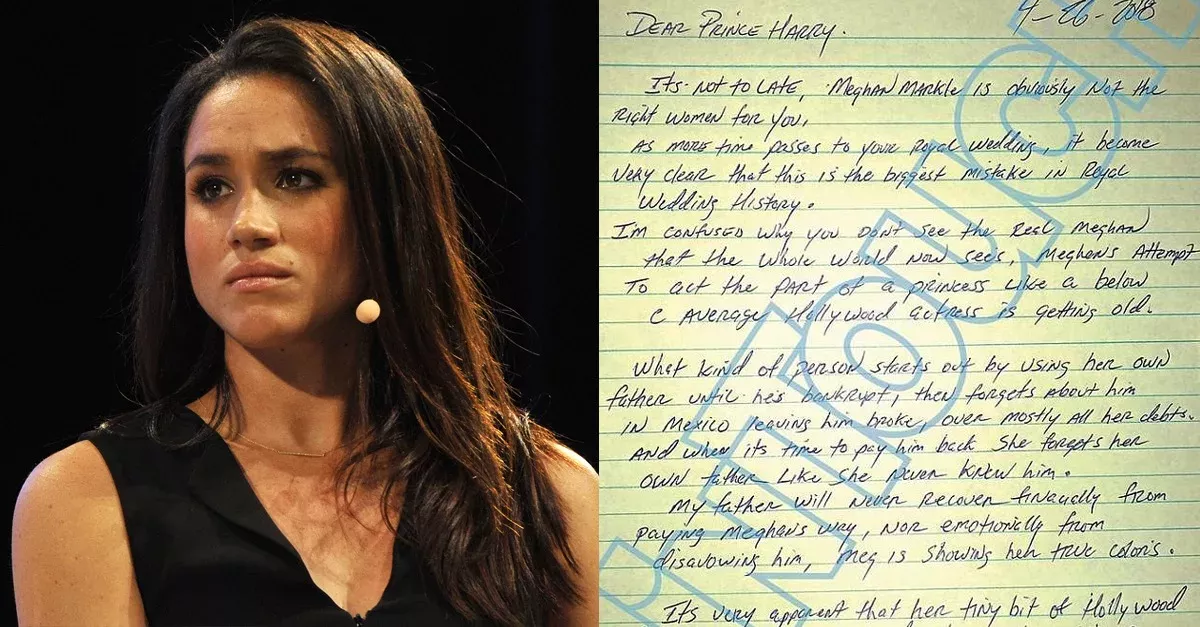 4-26-2018
DEAR PRINCE HARRY.
ITS NOT TO LATE, MEGHAN MARKLE IS obviously NOT the
Right WOMEN FOR YOU.
AS MORE time passes to your Royal Wedding, it become
Very CLEAR that this is the biggest mistake in Royal
Wedding History.
IM CONFUSED Why you DON'T SEE the REAL MEGHAN
that the whole world NOW SEES, MEGHANS Attempt
TO act the PART of a princess Like a below
C AVERAGE Hollywood actress is getting old.
What kind of person starts out by using her own
father until he's bankrupt, then forgets about him
IN MEXICO leaving him broke, over mostly All her debts.
AND when it's time to pay him back She forgets her
OWN father Like She Never KNEW him.
My father will Never Recover finacially from
paying Meghans way, NOR emotionally from
disavowing him, Meg is Showing her true colors.
It's very apparent that her tiny bit of Hollywood
InTouch